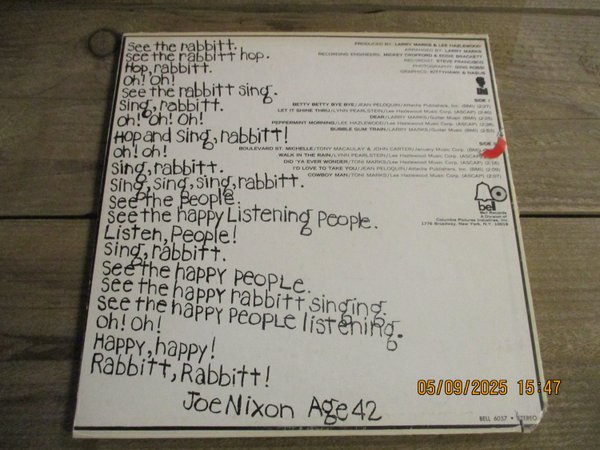 See the rabbitt.
see the rabbitt hop.
Hop, rabbitt.
oh! Oh!
see the rabbitt sing.
Sing, rabbitt.
oh! Oh! Oh!
Hop and sing, rabbitt!
oh! oh!
Sing, rabbitt.
Sing, sing, sing, rabbitt.
see the people.
see the happy Listening People.
Listen, People!
sing, rabbitt.
see the happy people.
see the happy rabbitt singing.
see the happy people listening.
oh! oh!
Happy, happy!
Rabbitt, Rabbitt!
Joe Nixon Age 42
PRODUCED BY: LARRY MARKS & LEE HAZLEWOOD
ARRANGED BY: LARRY MARKS
RECORDING ENGINEERS: MICKEY CROFFORD & EDDIE BRACKETT
RECORDIST: STEVE FRANCISCO
PHOTOGRAPHY: GINO ROSSI
GRAPHICS: KITTYHAWK &
SIDE 1
BETTY BETTY BYE BYE/JEAN PELOQUIN/Attache Publishers, Inc. (BMI) (2:27)
LET IT SHINE THRU/LYNN PEARLSTEIN/Lee Hazlewood Music Corp. (ASCAP)
DEAR/LARRY MARKS/Guitar Music (BMI)
PEPPERMINT MORNING/LEE HAZLEWOOD/Lee Hazlewood Music Corp. (ASCAP)
BUBBLE GUM TRAIN/LARRY MARKS/Guitar Music (BMI)
SIDE
BOULEVARD ST. MICHELLE/TONY MACAULAY & JOHN CARTER/January Music Corp. (BMI)
WALK IN THE RAIN/LYNN PEARLSTEIN/Lee Hazlewood Music Corp. (ASCAP)
DID 'YA EVER WONDER/TONI MARKS/Lee Hazlewood Music Corp. (ASCAP)
I'D LOVE TO TAKE YOU/JEAN PELOQUIN/Attache Publishers, Inc. (BMI)
COWBOY MAN/TONI MARKS/Lee Hazlewood Music Corp. (ASCAP)
bell
Bell Records
A Division of
Columbia Pictures Industries, Inc.
1776 Broadway, New York, N.Y. 10019
05/09/2025 15:47
BELL 6037 • STEREO